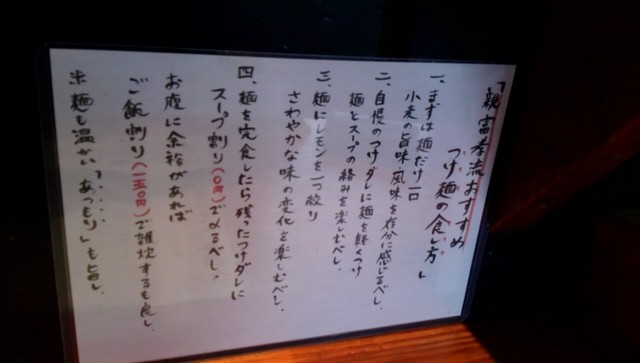 「親富孝流おすすめ
つけ麺の食し方」
一、まずは麺だけ一口
小麦の旨味、風味を存分に感じるべし。
二、自慢のつけダレに麺を軽くつけ
麺とスープの絡みを楽しむべし。
三、麺にレモンを一つ絞り
さわやかな味の変化を楽しむべし。
四、麺を完食したら残ったつけダレに
スープ割り(0円)で〆るべし。
お腹に余裕があれば
ご飯割り(一五〇円)で雑炊するも良し。
※麺も温かい「あつもり」も旨し。